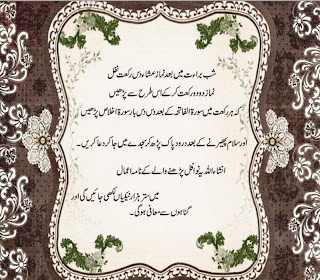 شب برات میں بعد نماز عشاء دس رکعت نفل
نماز دو دو رکعت کر کے اس طرح سے پڑھیں
کہ ہر رکعت میں سورۃ الفاتحہ کے بعد دس دس بار سورۃ اخلاص پڑھیں
اور سلام پھیرنے کے بعد درود پاک پڑھ کر سجدے میں جا کر دعا کریں۔
انشاءاللہ یہ نوافل پڑھنے والے کے نامہ اعمال
میں ستر ہزار نیکیاں لکھی جائیں گی اور
گناہوں سے معافی ہوگی۔